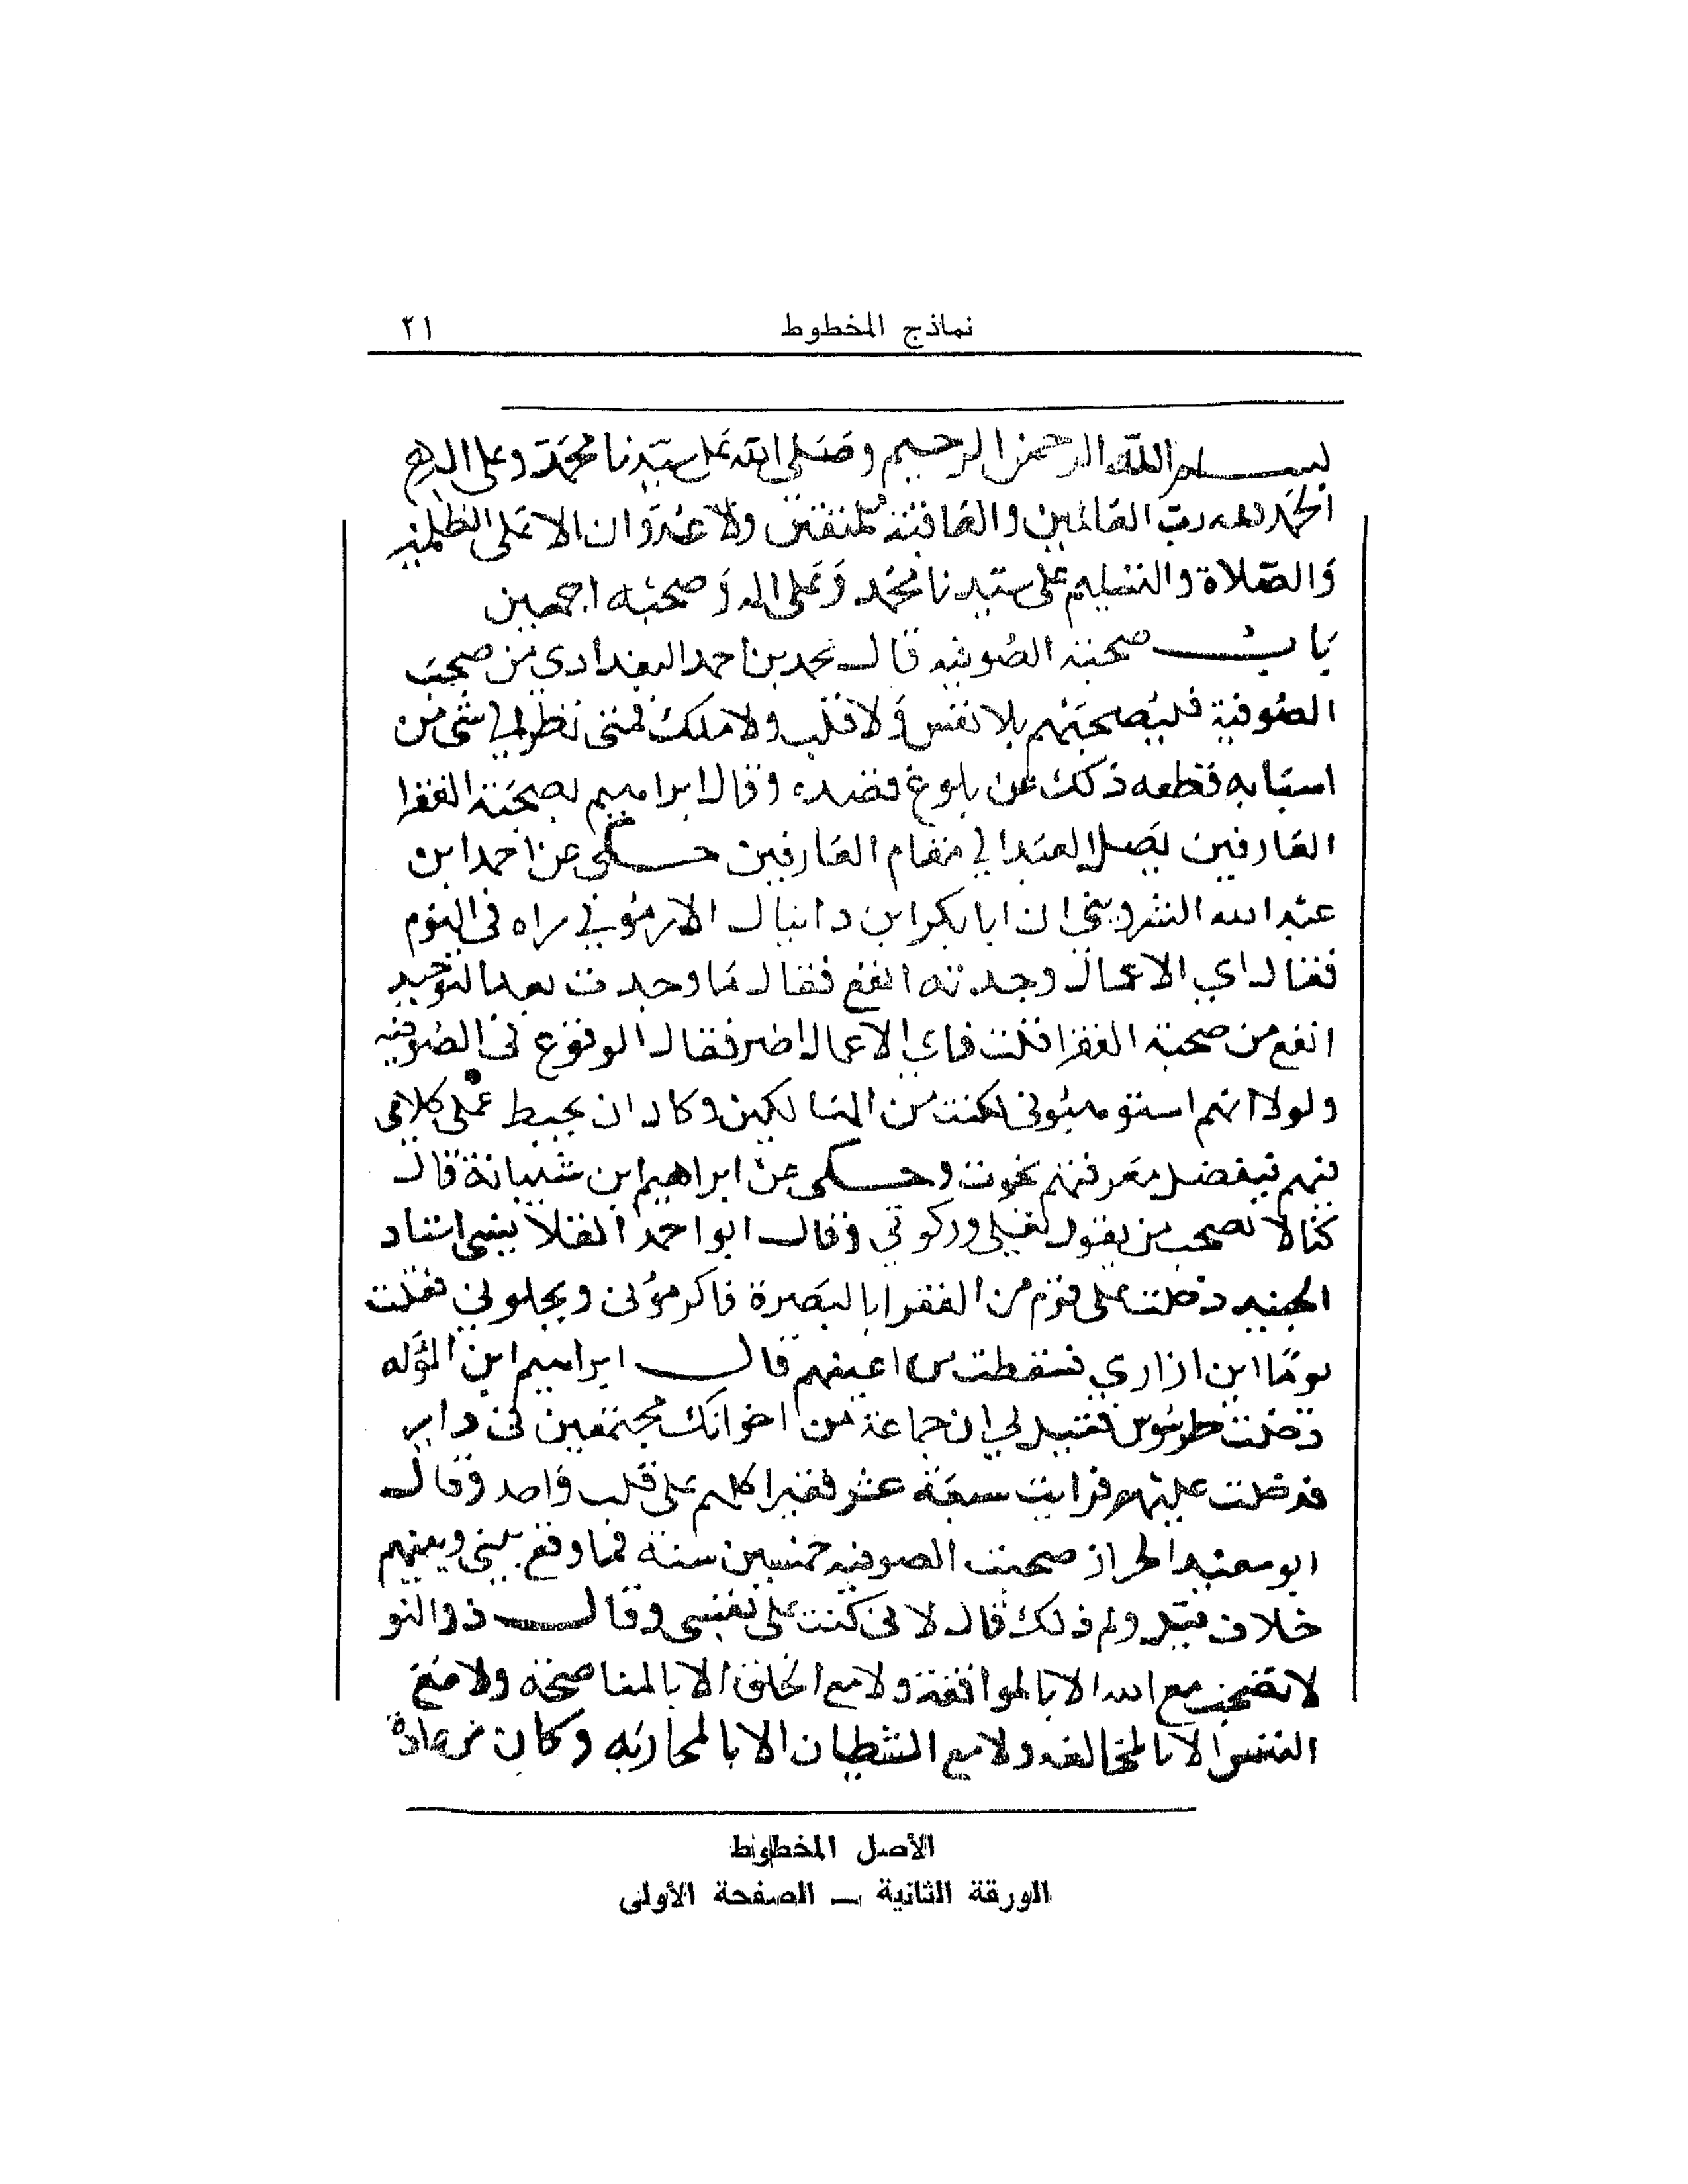 نماذج المخطوط ٢١
بسم الله الرحمن الرحيم وصلى الله على سيدنا محمد وعلى اله
الحمد لله رب العالمين والعاقبة للمتقين ولا عدوان الا على الظلمين
والصلاة والتسليم على سيدنا محمد وعلى اله وصحبه اجمعين
باب صحبة الصوفيه قال محمد بن احمد البغدادي من صحب
الصوفية فليصحبهم بلا نفس ولا قلب ولا ملك فمتى نظر الي شي من
اسبابه قطعه ذلك عن بلوغ قصده وقال ابراهيم بصحبة الفقرا
العارفين يصل العبد الي مقام العارفين حكي عن احمد ابن
عبد الله الشرويني ان ابا بكر ابن دانيال الارموني راه في النوم
فقال اي الاعمال وجدته انفع فقال ما وجدت بعد التوحيد
انفع من صحبة الفقرا قلت فاي الاعمال اضر فقال الوقوع في الصوفيه
ولولا انهم استوهبوني لكنت من الهالكين وكاد ان يحبط عملي كلامي
فيهم فبفضل معرفتهم نجوت وحكي عن ابراهيم ابن شيبانة قال
كنا لا نصحب من يقول نعلي وركوتي وقال ابو احمد القلانسي استاد
الجنيد دخلت على قوم من الفقرا بالبصرة فاكرموني وبجلوني فقلت
يوما اين ازاري فسقطت من اعينهم قال ابراهيم ابن المولد
دخلت طرسوس فقيل لي ان جماعة من اخوانك مجتمعين في دار
فدخلت عليهم فرايت سبعة عشر فقيرا كلهم على قلب واحد وقال
ابو سعيد الخراز صحبت الصوفيه خمسين سنة فما وقع بيني وبينهم
خلاف قيل ولم ذلك قال لاني كنت على نفسي وقال ذو النو
لا تصحب مع الله الا بالموافقة ولا مع الخلق الا بالمناصحة ولا مع
النفس الا بالمخالفه ولا مع الشيطان الا بالمحاربه وكان من عادة
الأصل المخطوط
الورقة الثانية – الصفحة الأولى